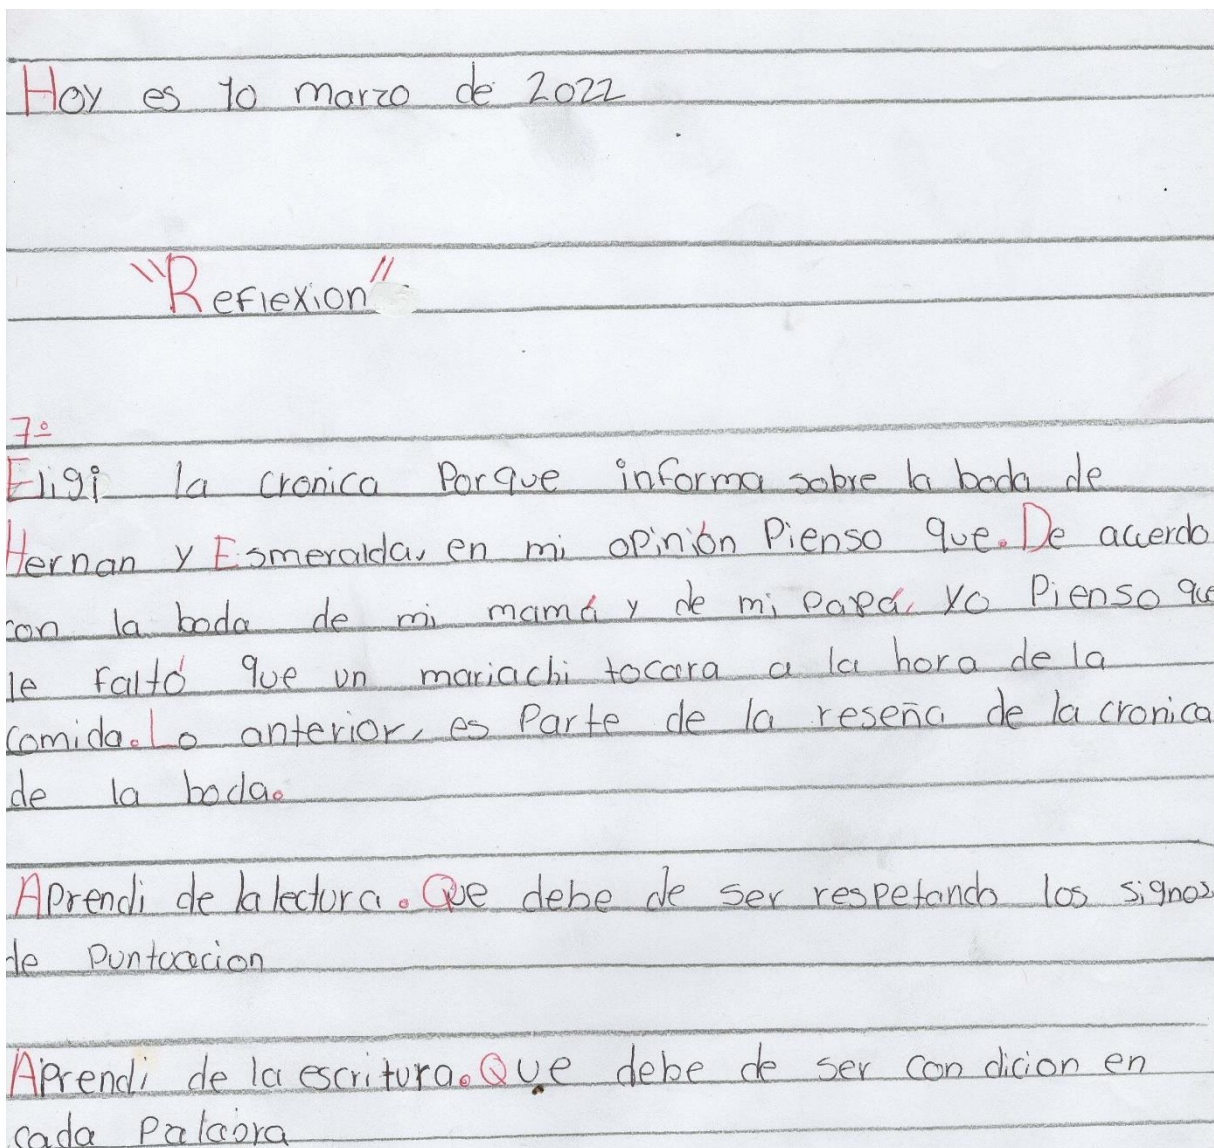 Hoy es 10 marzo de 2022
"Reflexion"
7º
Eligi la cronica Porque informa sobre la boda de
Hernan y Esmeralda, en mi opinión Pienso que. De acuerdo
con la boda de mi mamá y de mi Papá, yo Pienso que
le faltó que un mariachi tocara a la hora de la
comida. Lo anterior, es Parte de la reseña de la cronica
de la boda.
Aprendi de la lectura. Que debe de ser respetando los signos
de Puntuacion
Aprendi de la escritura. Que debe de ser con dicion en
cada Palabra